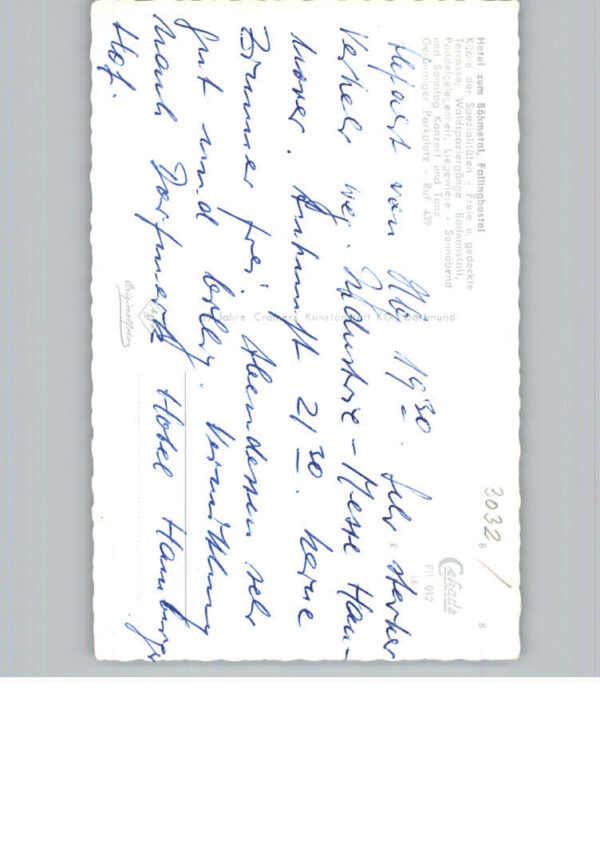 Hotel zum Böhmetal, Fallingbostel
Küche der Spezialitäten - Freie u. gedeckte
Terrasse, Waldspaziergänge Badeanstalt,
Paddelgelegenheit, Liegewiese - Sonnabend
und Sonntag Konzert und Tanz
Geräumiger Parkplatz - Ruf 439
Abfahrt von Hbg 19³⁰. Sehr starker
Verkehr weg. Industrie-Messe Han-
nover. Ankunft 21³⁰. keine
Zimmer frei. Abendessen sehr
gut und billig. Vermittlung
nach Dorfmark Hotel Hamburger
Hof.
Jahre Cramers Kunstanstalt KG, Dortmund
Originalfoto
3032
Cekade
Fll 012
B
B